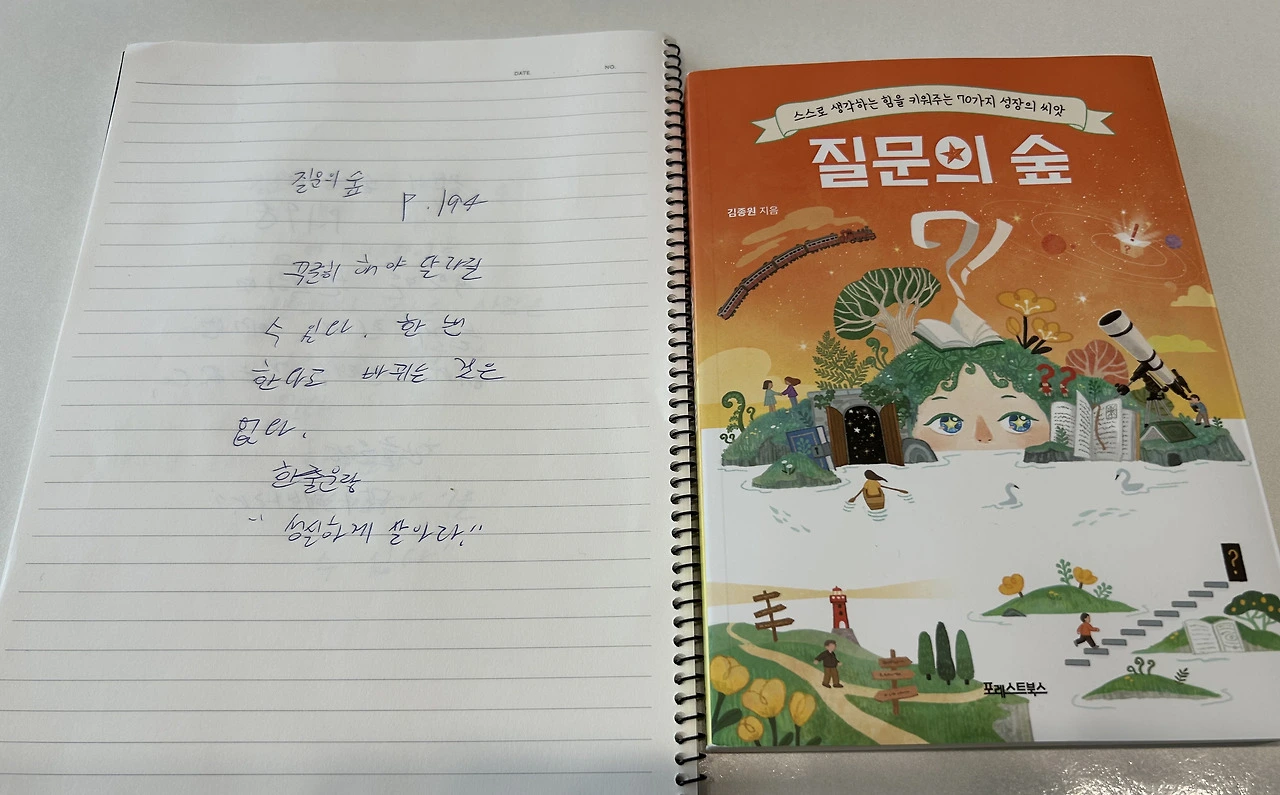 DATE. NO.
질문의 숲
P.194
꾸준히 해야 달라질
수 있다. 한 번
한다고 바뀌는 것은
없다.
한줄문장
"성실하게 살아라."
스스로 생각하는 힘을 키워주는 70가지 성장의 씨앗
질문의 숲
김종원 지음
포레스트북스